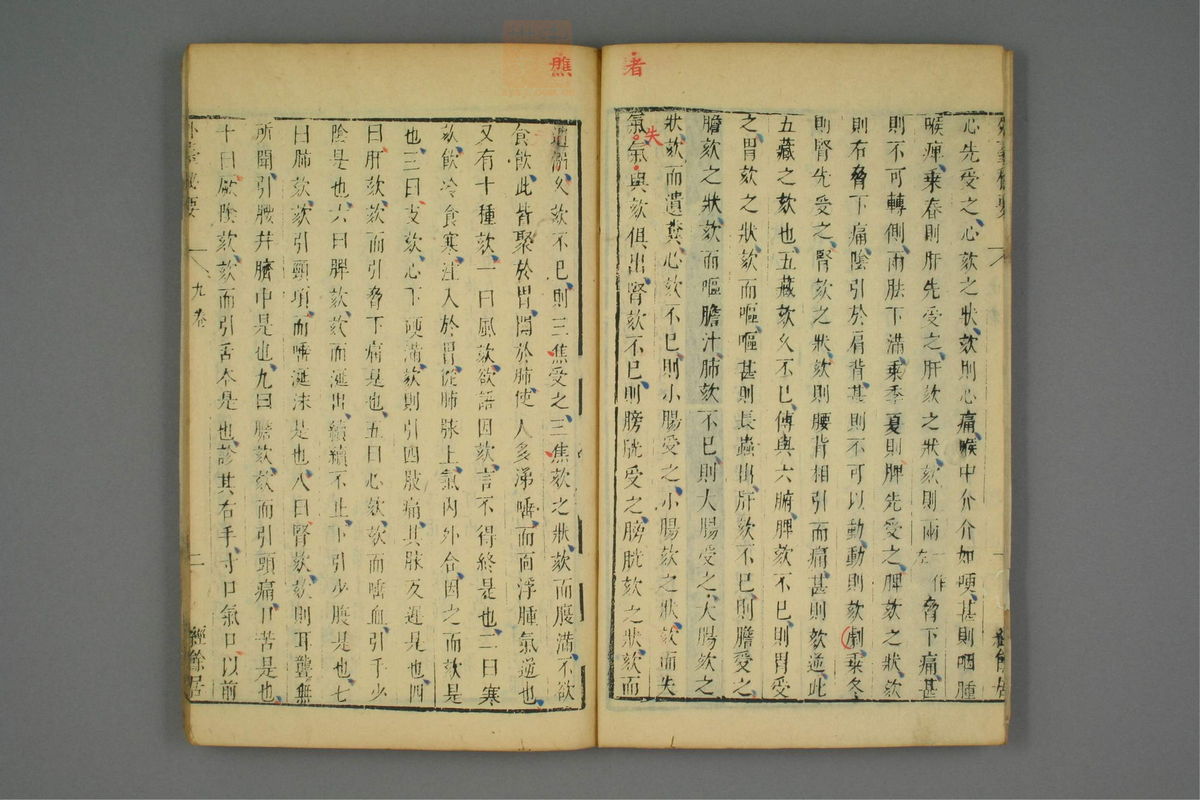 者
心先受之心欬之狀欬則心痛喉中介介如哽甚則咽腫
喉痺乘春則肝先受之肝欬之狀欬則兩一作左脅下痛甚
則不可轉側兩胠下滿乘季夏則脾先受之脾欬之狀欬
則右脅下痛陰引於肩背甚則不可以動動則欬劇乘冬
則腎先受之腎欬之狀欬則腰背相引而痛甚則欬逆此
五藏之欬也五藏欬久不已傳與六腑脾欬不已則胃受
之胃欬之狀欬而嘔嘔甚則長蟲出肝欬不已則膽受之
膽欬之狀欬而嘔膽汁肺欬不已則大腸受之大腸欬之
狀欬而遺糞心欬不已則小腸受之小腸欬之狀欬而失
失
氣氣與欬俱出腎欬不已則膀胱受之膀胱欬之狀欬而
膲
遺溺久欬不已則三焦受之三焦欬之狀欬而腹滿不欲
食飲此皆聚於胃關於肺使人多涕唾而面浮腫氣逆也
又有十種欬一曰風欬欲語因欬言不得終是也二曰寒
欬飲冷食寒注入於胃從肺脉上氣內外合因之而欬是
也三曰支欬心下硬滿欬則引四肢痛其脉反遲是也四
曰肝欬欬而引脅下痛是也五曰心欬欬而唾血引手少
陰是也六曰脾欬欬而涎出續續不止下引少腹是也七
曰肺欬欬引頸項而唾涎沫是也八曰腎欬欬則耳聾無
所聞引腰并臍中是也九曰膽欬欬而引頭痛口苦是也
十曰厥陰欬欬而引舌本是也診其右手寸口氣口以前
外臺秘要
九卷
二
經餘居